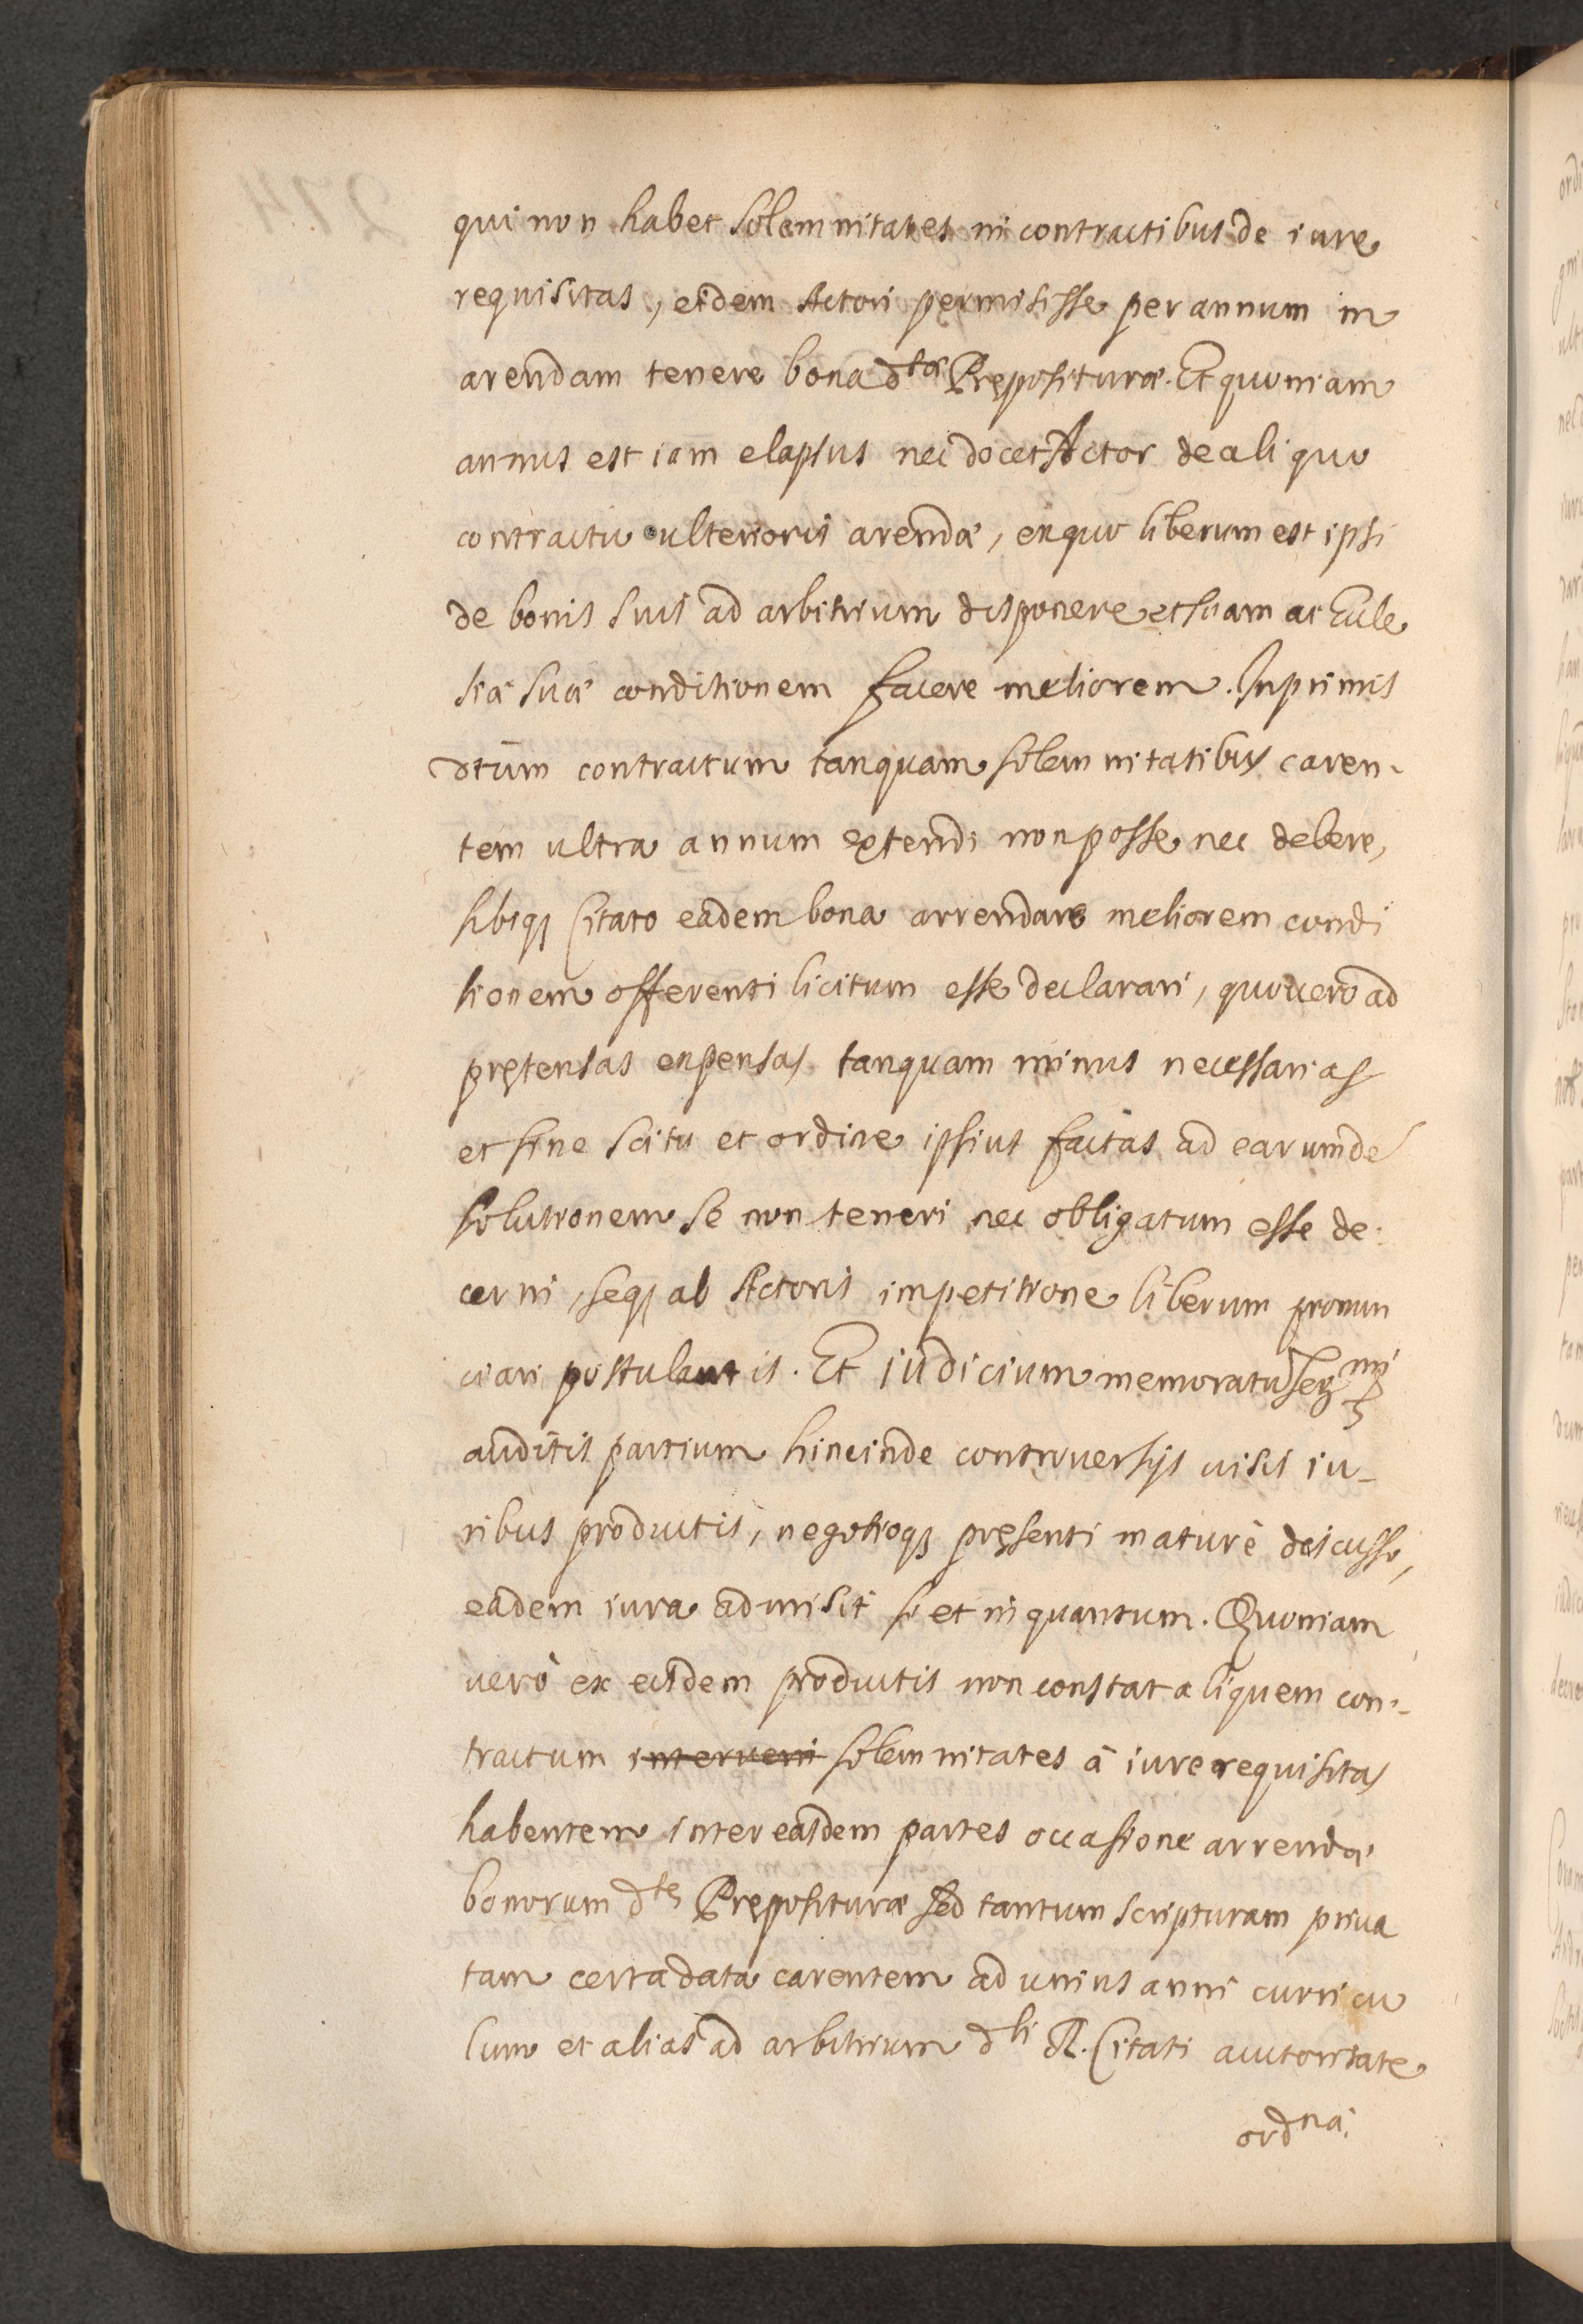 qui non habet solemnitates in contractibus de iure
requisitas, eidem Actori permisisse per annum in
arendam tenere bona d^tæ Pręposituræ. Et quoniam
annus est iam elapsus nec docet Actor de aliquo
contractu ulterioris arendæ, ex quo liberum est ipsi
de bonis suis ad arbitrium disponere et suam ac Eccle
siæ suæ conditionem facere meliorem. Inprimis
dtum contractum tanquam solemnitatibus caren-
tem ultra annum extendi non posse nec debere,
sibiq Citato eadem bona arrendare meliorem condi
tionem offerenti licitum esse declarari, quo uero ad
prętensas expensas tanquam minus necessarias
et sine scitu et ordine ipsius factas ad earumdē
solutionem se non teneri nec obligatum esse de-
cerni, seq ab Actoris impetitione liberum pronun
ciari postulantis. Et iudicium memoratu Ser^mi
auditis partium hincinde controuersijs uisis iu-
ribus productis, negotioq pręsenti maturè discusso,
eadem iura admisit si et in quantum. Quoniam
uerò ex eisdem productis non constat aliquem con-
tractum interueni solemnitates à iure requisitas
habentem inter easdem partes occasione arrendæ
bonorum d^tę Pręposituræ sed tantum scripturam priua
tam certa data carentem ad unius anni curricu
lum et alias ad arbitrium d^ti R. Citati auctoritate
ord^na: